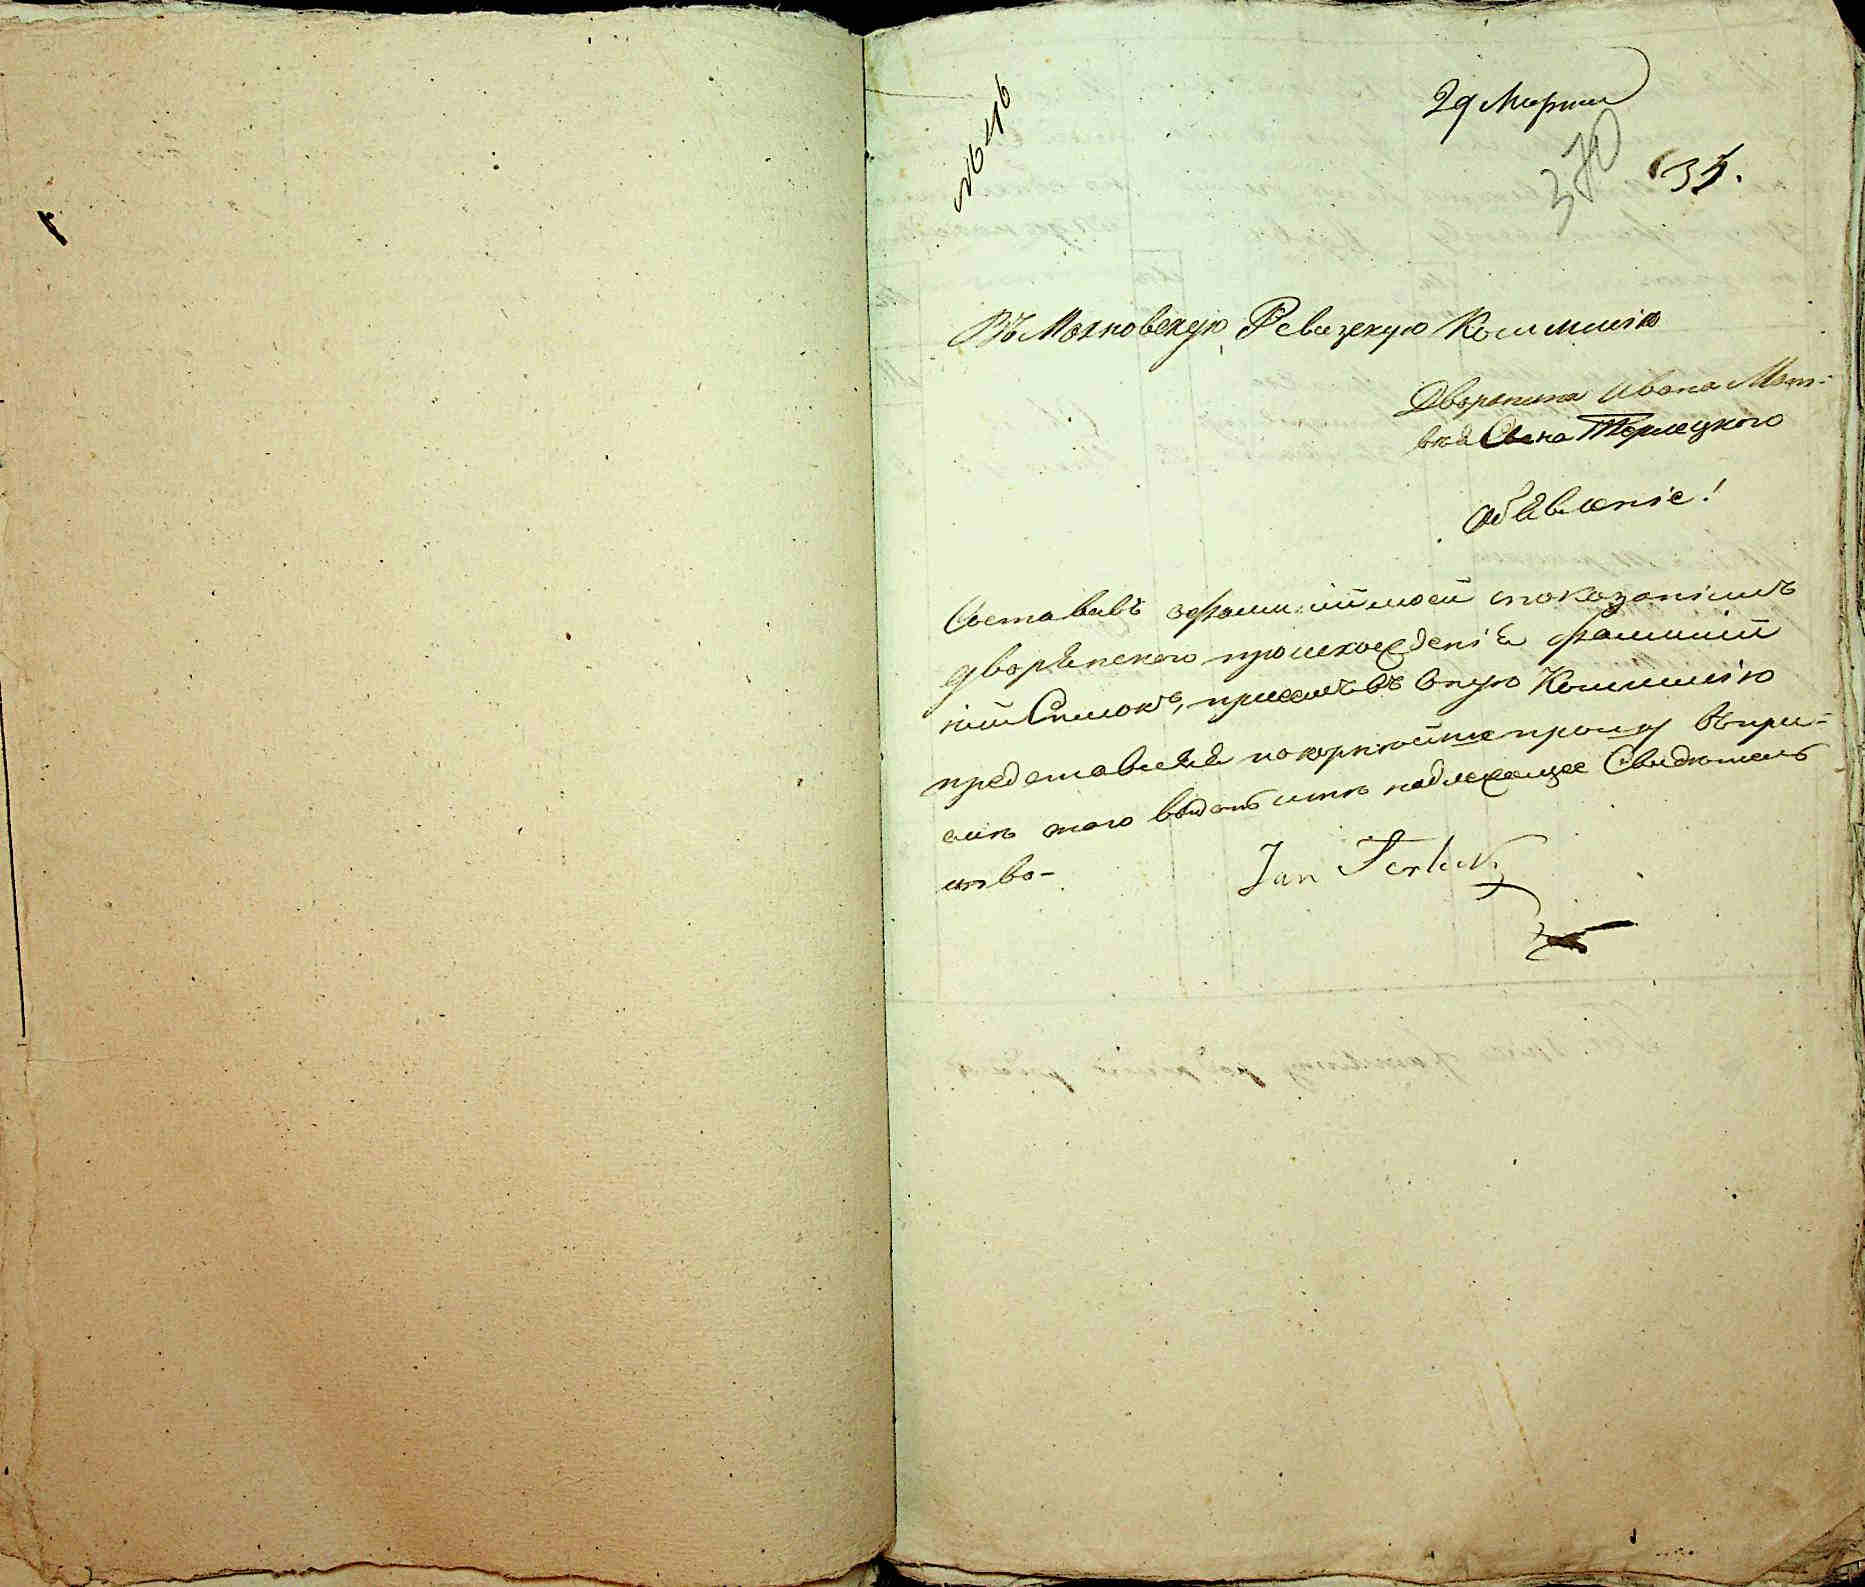 № 446
29 Марта
370
34.
Въ Махновскую Ревизскую Коммисію
Дворянина Ивана Мат-
вѣя Сына Терлецкого
Обявленіе!
Составивъ о фамиліи моей споказаніемъ
дворянского происхожденія фамиліи
Списокъ, при семъ въ оную Коммисію
представляя покорнѣйше прошу въ при-
емѣ того выдать мнѣ надлежащее Свидѣтель
ство-
Jan Terlecki